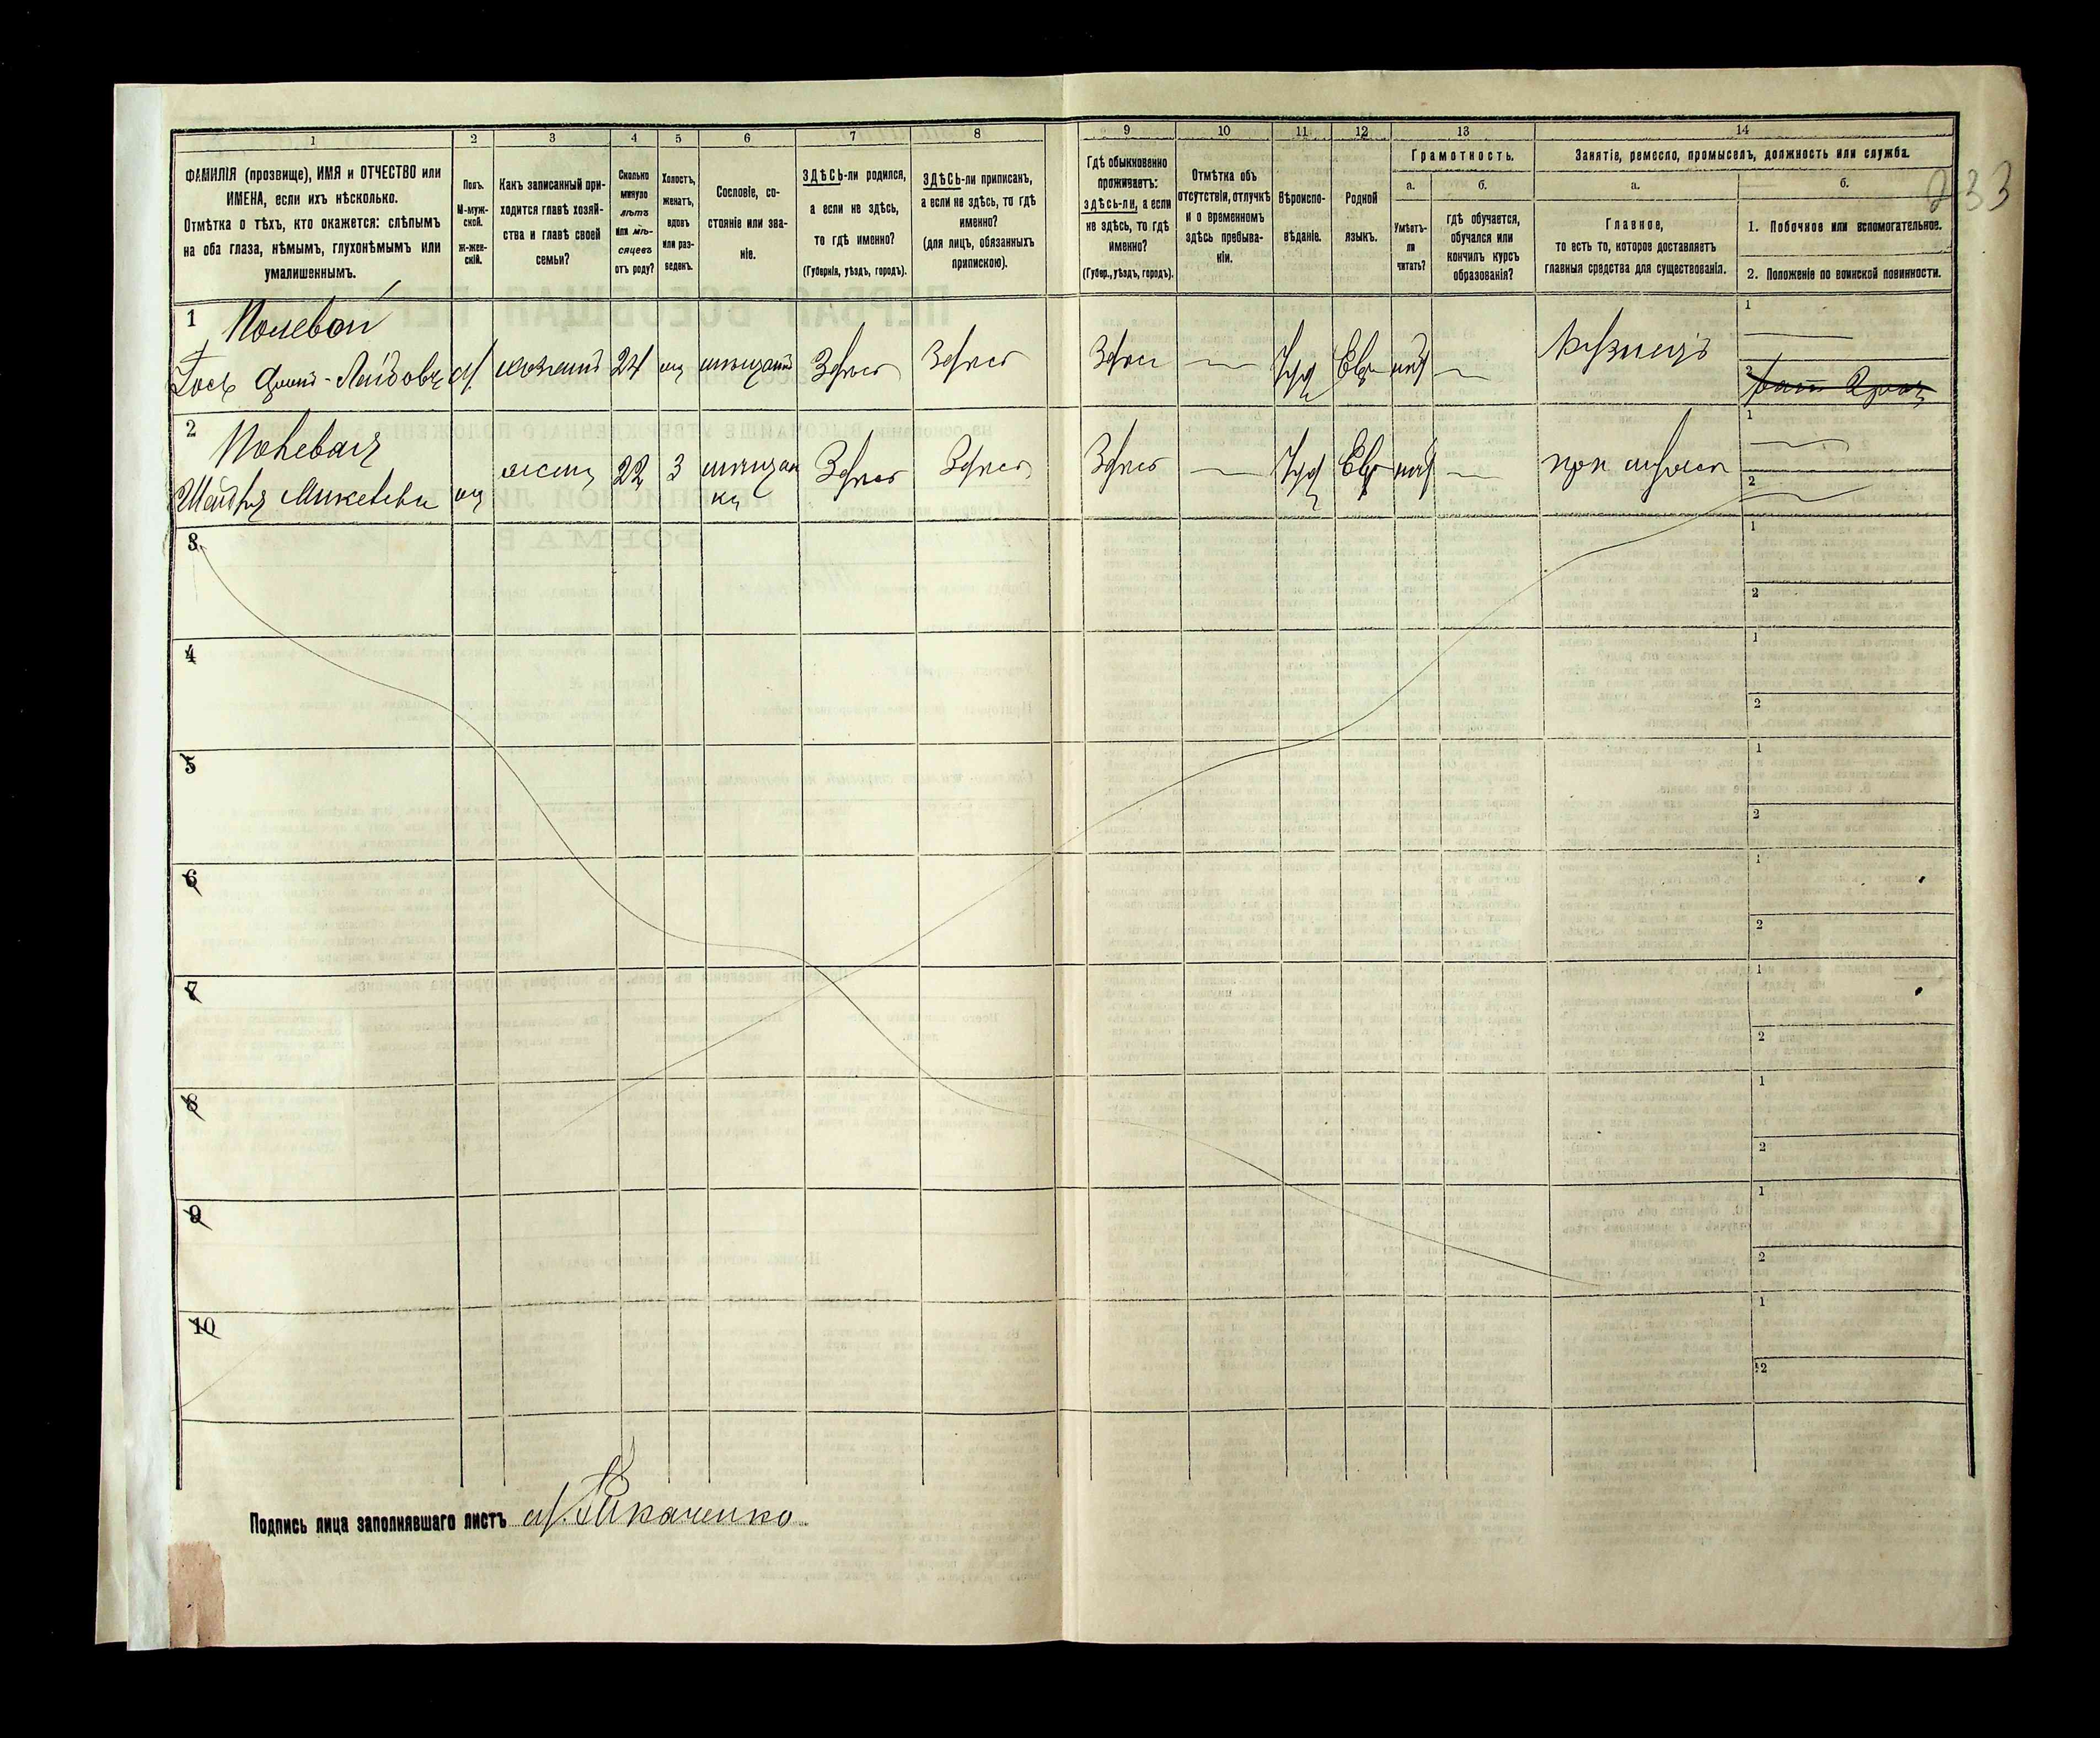 233
1 2 3 4 5 6 7 8 9 10 11 12 13 14
ФАМИЛІЯ (прозвище), ИМЯ и ОТЧЕСТВО или
ИМЕНА, если ихъ нѣсколько.
Отмѣтка о тѣхъ, кто окажется: слѣпымъ
на оба глаза, нѣмымъ, глухонѣмымъ или
умалишеннымъ.
Полъ.
М-муж-
ской.
Ж-жен-
скій.
Какъ записанный при-
ходится главѣ хозяй-
ства и главѣ своей
семьи?
Сколько
минуло
лѣтъ
или мѣ-
сяцевъ
отъ роду?
Холостъ,
женатъ,
вдовъ
или раз-
веденъ.
Сословіе, со-
стояніе или зва-
ніе.
ЗДѢСЬ-ли родился,
а если не здѣсь,
то гдѣ именно?
(Губернія, уѣздъ, городъ).
ЗДѢСЬ-ли приписанъ,
а если не здѣсь, то гдѣ
именно?
(для лицъ, обязанныхъ
припискою).
Гдѣ обыкновенно
проживаетъ:
здѣсь-ли, а если
не здѣсь, то гдѣ
именно?
(Губер., уѣздъ, городъ).
Отмѣтка объ
отсутствіи, отлучкѣ
и о временномъ
здѣсь пребыва-
ніи.
Вѣроиспо-
вѣданіе.
Родной
языкъ.
Грамотность.
а.
Умѣетъ-
ли
читать?
б.
гдѣ обучается,
обучался или
кончилъ курсъ
образованія?
Занятіе, ремесло, промыселъ, должность или служба.
а.
Главное,
то есть то, которое доставляетъ
главныя средства для существованія.
б.
1. Побочное или вспомогательное.
2. Положеніе по воинской повинности.
1 Полевой
24 Здѣсь Здѣсь Здѣсь Іуд Евр Кузнецъ
1
2
2 Полевая
22 3 мѣщан
ка Здѣсь Здѣсь Здѣсь Іуд Евр при мужѣ
1
2
3
1
2
4
1
2
5
1
2
6
1
2
7
1
2
8
1
2
9
1
2
10
1
2
Подпись лица заполнявшаго листъ Ткаченко